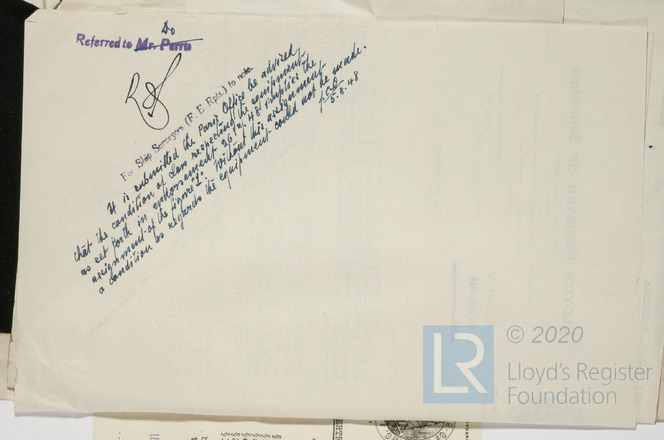 Do
Referred to Mr. Parris
For Ship Surveyors (F. E. Rpts.) to note
It is submitted the Paris Office be advised
that the condition of Loan respecting the equipment
as set forth in endorsement 26.2.48 implies the
assignment of the figure "1". Without this assignment
a condition as regards the equipment could not be made.
5.8.48
© 2020
LR
Lloyd's Register
Foundation